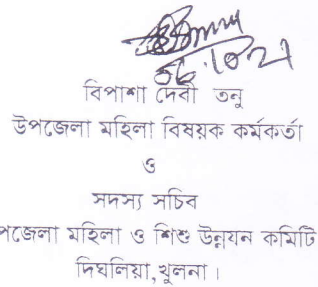 বিপাশা দেবী তনু
উপজেলা মহিলা বিষয়ক কর্মকর্তা
ও
সদস্য সচিব
পজেলা মহিলা ও শিশু উন্নয়ন কমিটি
দিঘলিয়া, খুলনা ।